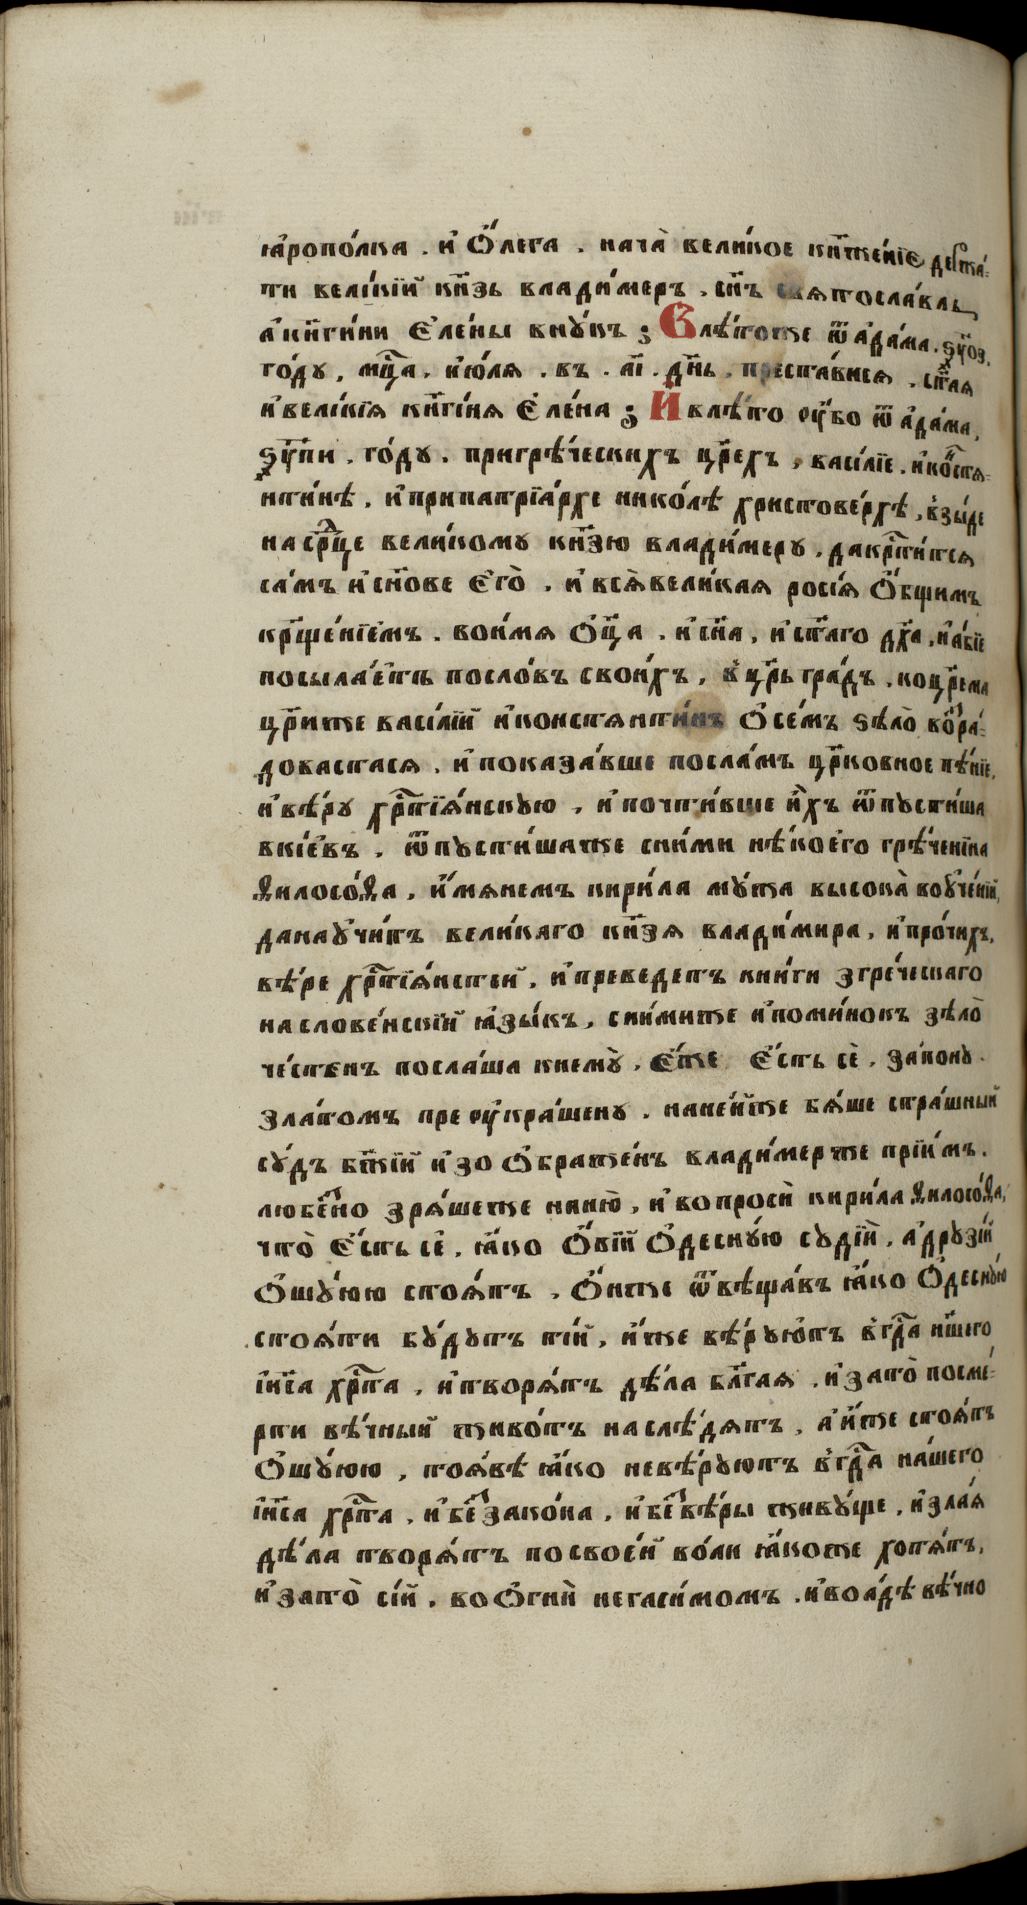 ꙗ҆ропо́лка . и҆ Ѻ҆́лега . нача̀ вели́кое кн҃же́нїе держа́-
ти вели́кїй кн҃зь влади́меръ . сн҃ъ святосла́вль
а҆ кн҃ги́ни Є҆ле́ны вну́къ ; Влѣ́тоже ѿ а҆да́ма . ѕ҂у҃оз .
го́ду , мц҃а . и҆ю́ля . въ . а҃і . дн҃ь . преста́вися . ст҃ая
и҆ вели́кїя кн҃ги́ня Є҆ле́на ; И҆ влѣ́то оу҆́бо ѿ а҆да́ма ,
ѕ҂у҃пи . го́ду . пригрѣ́ческихъ цр҃ехъ , васи́лїе . и҆ ко́стя-
нти́нѣ . и҆ припатрїа́рхе нико́лѣ христове́рхѣ , взы́де
на ср҃це вели́кому кн҃зю влади́меру . да крⷭ҇ти́тся
са́мъ и҆ сн҃ове Є҆го̀ . и҆ вся̀ вели́кая росі́я Ѻ҆́бщимъ
крⷳ҇ще́нїемъ . во и́мя Ѻ҆ц҃а . и҆ сн҃а , и҆ ст҃аго дх҃а . и҆ а́бїе
посыла́етъ посло́въ свои́хъ , в цр҃ь гра́дъ . ко цр҃ема
цр҃иже васи́лїй и҆ констянти́нъ Ѻ҆ се́мъ ѕѣло̀ возра́-
доваστася . и҆ показа́вше посла́мъ цр҃ковное пѣ́нїе ,
и҆ вѣ́ру хрⷭ҇тїя́нскую , и҆ почти́вше и҆́хъ ѿпусти́ша
вкі́евъ . ѿпусти́шаже сни́ми нѣ́коего грѣ́ченїна
Ѳилосо́Ѳа , и҆́мянемъ кири́ла му́жа высока̀ во у҆че́нїй ,
да нау҆чи́тъ вели́каго кн҃зя влади́мира , и҆ про́чихъ ,
вѣ́ре хрⷭ҇тїя́нстей , и҆ преведетъ кни́ги згре́ческаго
на слове́нскїй ꙗ҆зы́къ , сни́миже и҆ поми́нокъ зѣло̀
че́стенъ посла́ша кнему̀ . Є҆́же Є҆́сть сѐ . за́пону .
зла́томъ пре оу҆кра́шену . нане́йже бя́ше стра́шный
су́дъ бж҃їй и҆зо Ѻ҆браже́нъ влади́мерже прїи́мъ .
любе́зно зря́шеже наню̀ , и҆ вопроси̏ кири́ла Ѳилосо́Ѳа ,
что̀ Є҆́сть сѐ , ꙗ҆́ко Ѻ҆́вїй Ѻ҆десну́ю судїи̏ , а҆ друзі́й
Ѻ҆шу́юю стоя́тъ . Ѻ҆́нже ѿвѣща́въ ꙗ҆́ко Ѻ҆десну́ю
стоя́ти бу́дутъ ті́й , и҆́же вѣ́руютъ в гдⷭ҇а нш҃его
і҆и҃са хрⷭ҇та , и҆ творя́тъ дѣ́ла бл҃гая , и҆ зато̀ посме́-
рти вѣ́чный живо́тъ наслѣ́дятъ , а҆ и҆́же стоя́тъ
Ѻ҆шу́юю , тоя́вѣ ꙗ҆́ко невѣ́руютъ в гдⷭ҇а на́шего
і҆и҃са хрⷭ҇та , и҆ беззако́на , и҆ безвѣ́ры живу́ще , и҆ зла́я
дѣ́ла творя́тъ по свое́й во́ли ꙗ҆́коже хотя́тъ ,
и҆ зато̀ сі́й . во Ѻ҆гни̏ негаси́момъ . и҆ во а́дѣ вѣ́чно